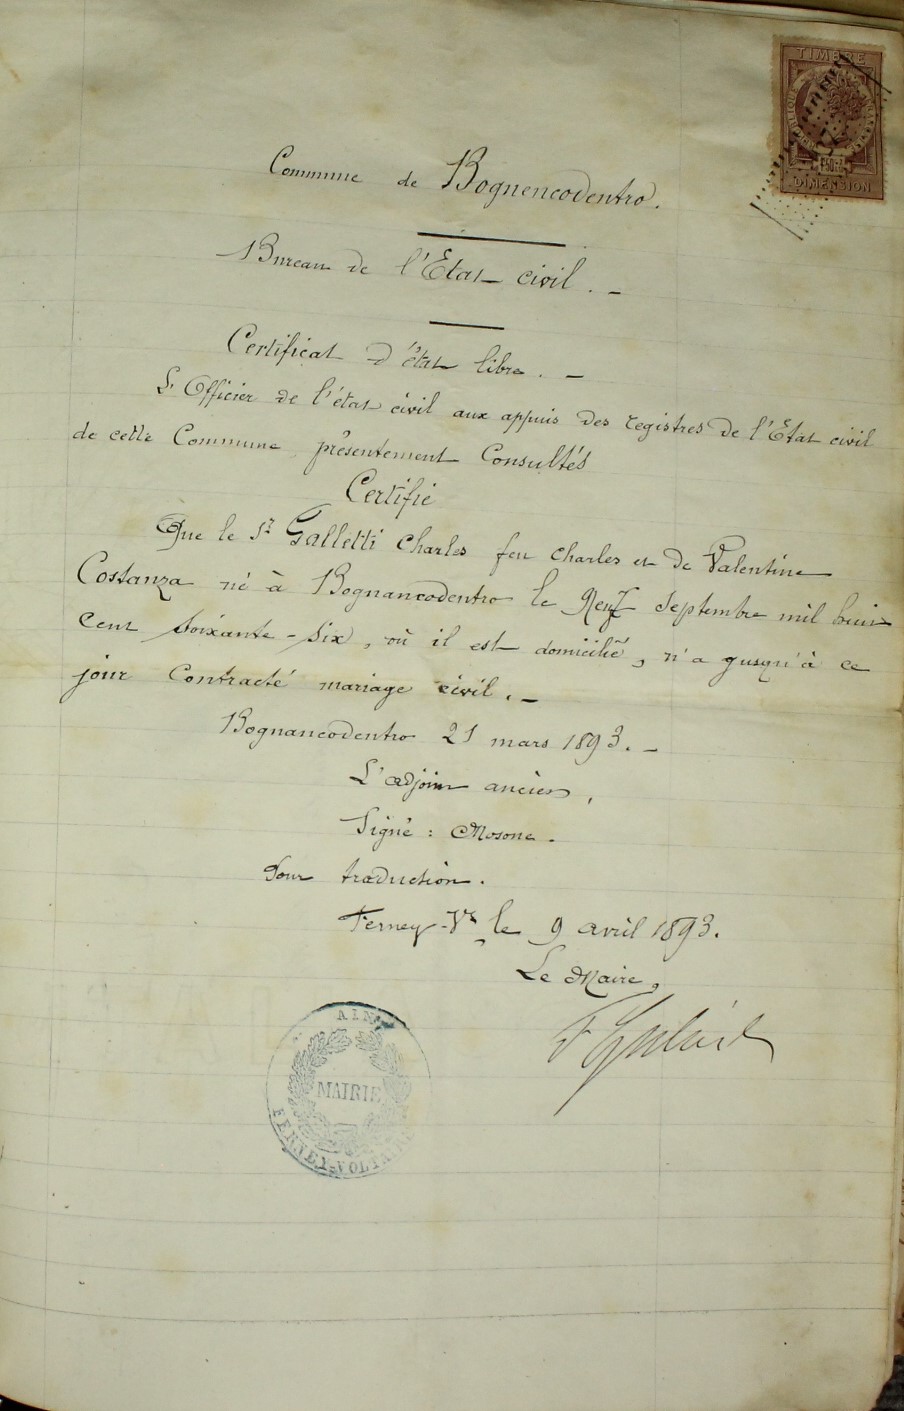 TIMBRE
DIMENSION
Commune de Bognencodentro.
Bureau de l'Etat civil. -
Certificat d'état libre. -
L'Officier de l'état civil aux appuis des registres de l'Etat civil
de cette Commune présentement Consultés
Certifie
Que le Sr Galletti Charles feu Charles et de Valentine
Costanza né à Bognancodentro le Neuf Septembre mil huit
cent soixante-six, où il est domicilié, n'a jusqu'à ce
jour Contracté mariage civil. -
Bognancodentro 21 mars 1893. -
L'adjoint ancien,
Signé : Mosone.
Pour traduction.
Ferney-Vre le 9 avril 1893.
Le Maire,
AIN
MAIRIE
FERNEY-VOLTAIRE